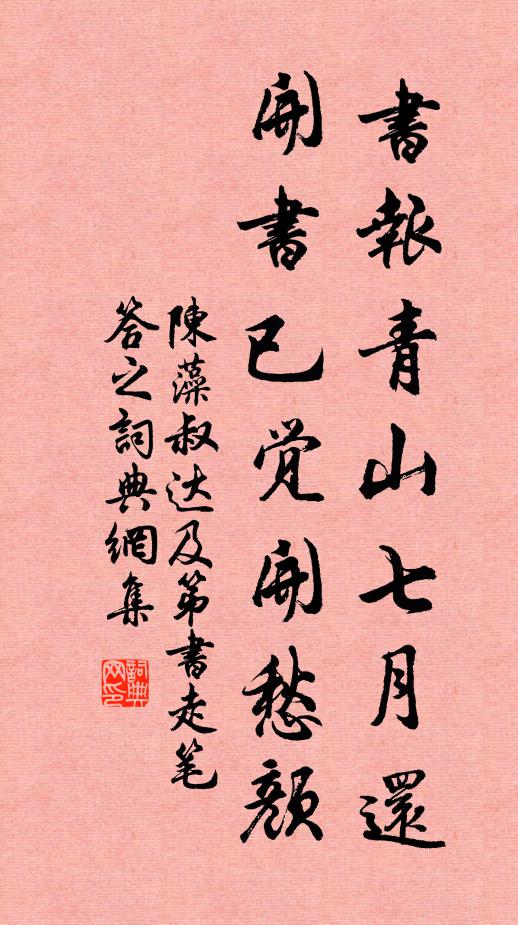 書報青山七月還
開書已覚開愁顔
陳藻叔达及第書走笔
答之詞典網集
詞典
网印